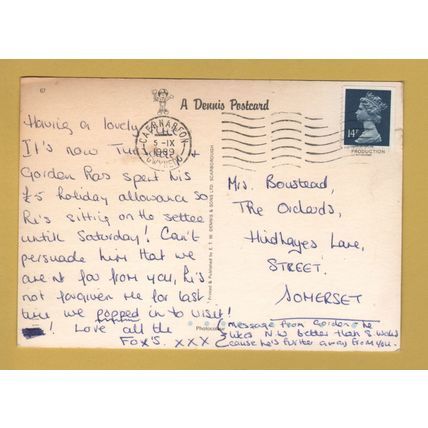 67
A Dennis Postcard
CAERNARFON
5-IX
1989
GWYNEDD
14P
PRODUCTION
Having a lovely
It's now
Gordon has spent his
£5 holiday allowance so
he's sitting on the settee
untill Saturday! Can't
persuade him that we
are not far from you, he's
not forgiven me for last
time we popped in to visit!
! Love all the
FOX'S. XXX
Printed & Published by E. T. W. DENNIS & SONS LTD. SCARBOROUGH
Photocolour
Mrs. Bowstead,
The Orchards,
Hindhayes Lane,
STREET.
SOMERSET
(message from Gordon he
likes N.W better than S. Wales
cause he's further away from you.